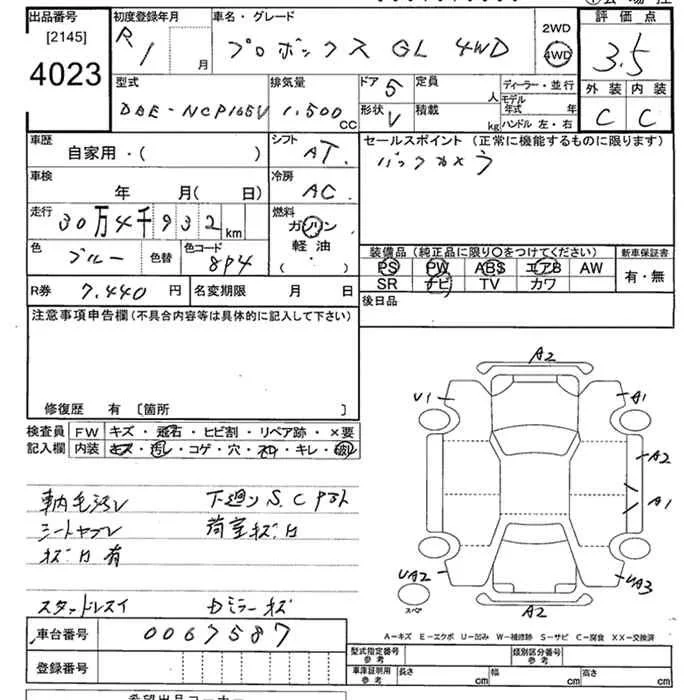 出品番号 初度登録年月 車名・グレード 評価点
[2145] R 1 月 プロボックス GL 4WD 2WD 4WD 3.5
4023
型式 排気量 ドア 5 定員 人 ディーラー・並行 外装 内装
DBE-NCP165V 1,500cc 形状 V 積載 kg モデル年式 年 C C
ハンドル 左・右
車歴 シフト セールスポイント (正常に機能するものに限ります)
自家用・( ) AT バックカメラ
車検 冷房
年 月(日) AC
走行 燃料
30万4千932km ガソリン
軽油
(・)
色 色替 色コード 装備品(純正品に限り〇をつけてください) 新車保証書
ブルー 8P4 PS PW ABS エアB AW 有・無
SR ナビ TV カワ
R券 7,440円 名変期限 月 日 後日品
注意事項申告欄(不具合内容等は具体的に記入して下さい)
修復歴 有 〔箇所 〕
検査員 FW キズ・飛石・ヒビ割・リペア跡・×要
記入欄 内装 キズ・汚レ・コゲ・穴・ネジ・キレ・破レ
A2
U1 A1
A2
A1
UA2 UA3
スペア
A2
下廻リ S.C
シートヤブレ 荷室キズ
有
スタッドレス Dミラーキズ
A-キズ E-エクボ U-凹み W-補修跡 S-サビ C-腐食 XX-交換済
車台番号 0067587
登録番号
型式指定番号 参考 類別区分番号 参考
車庫証明用 参考 長さ cm 幅 cm 高さ cm
希望出品コーナー